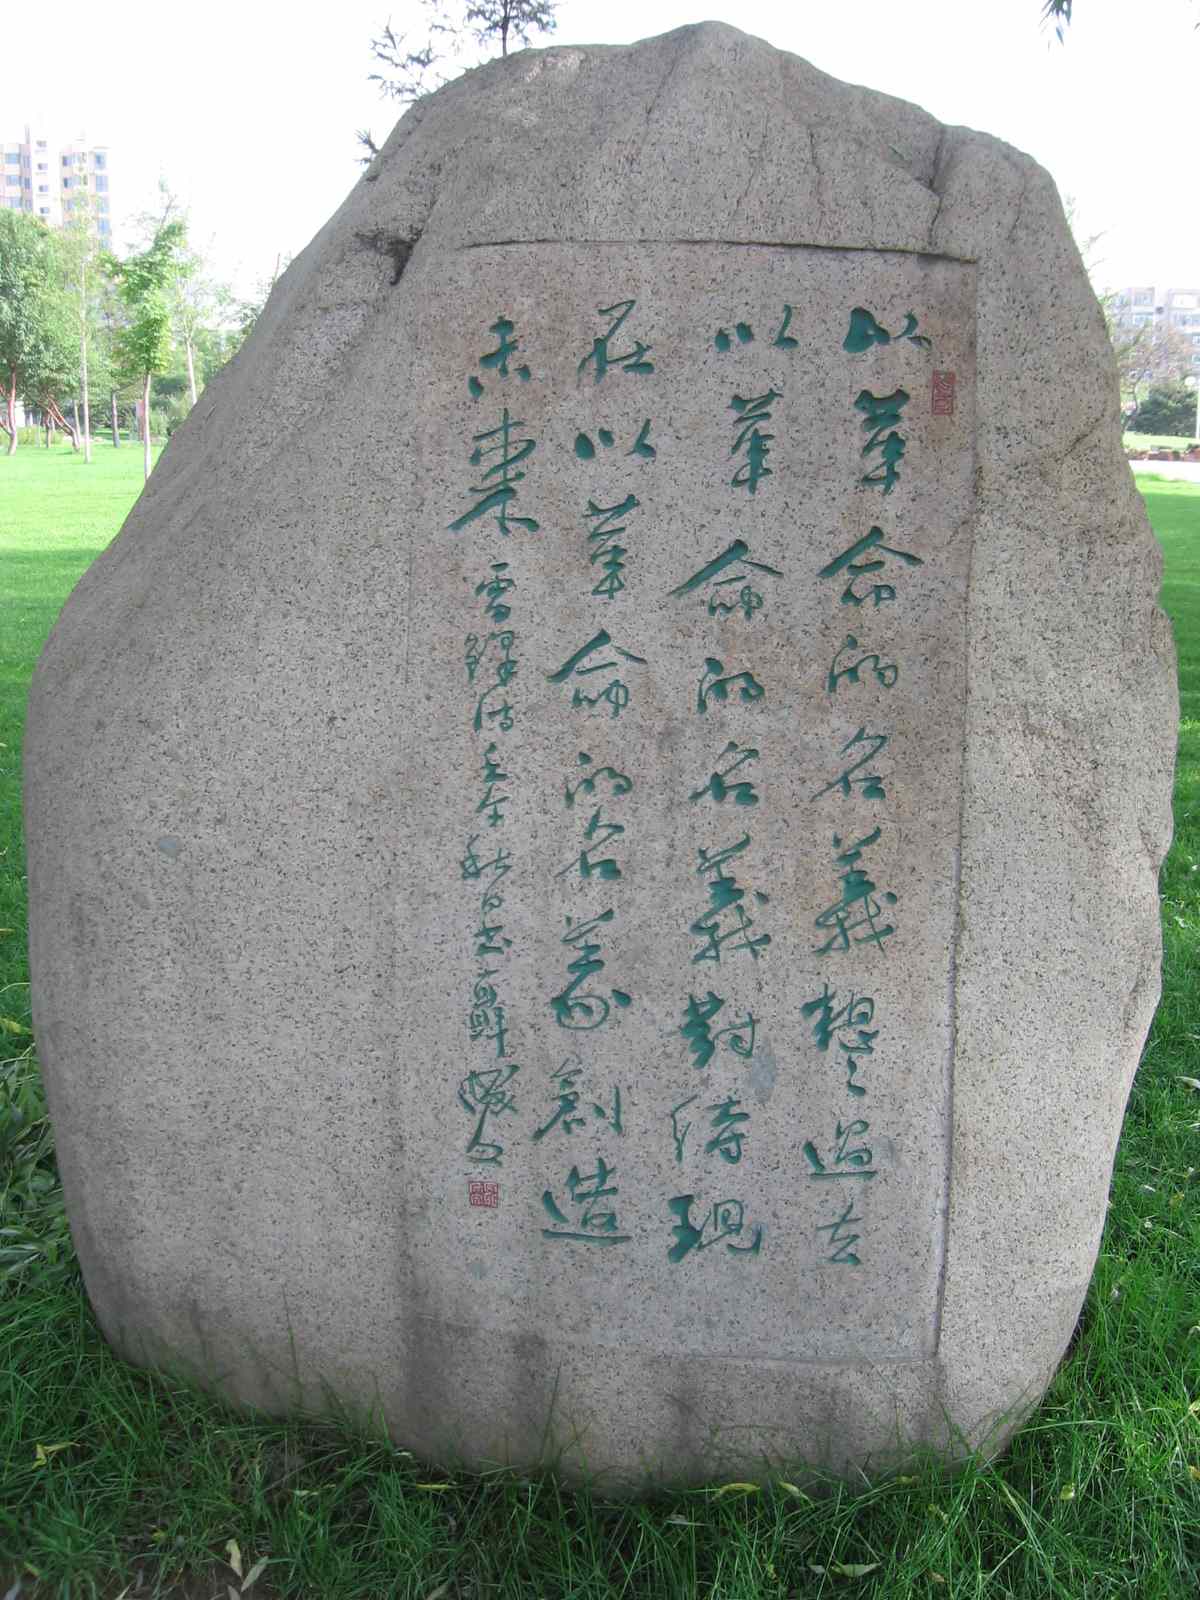 以革命的名義想想過去
以革命的名義對待現
在以革命的名義創造
未來 雪鋒詩壬午秋日書